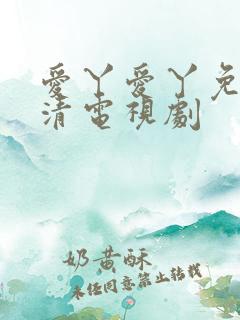 愛丫愛丫免
清電視劇
奶黃酥
未任同意禁止轉載